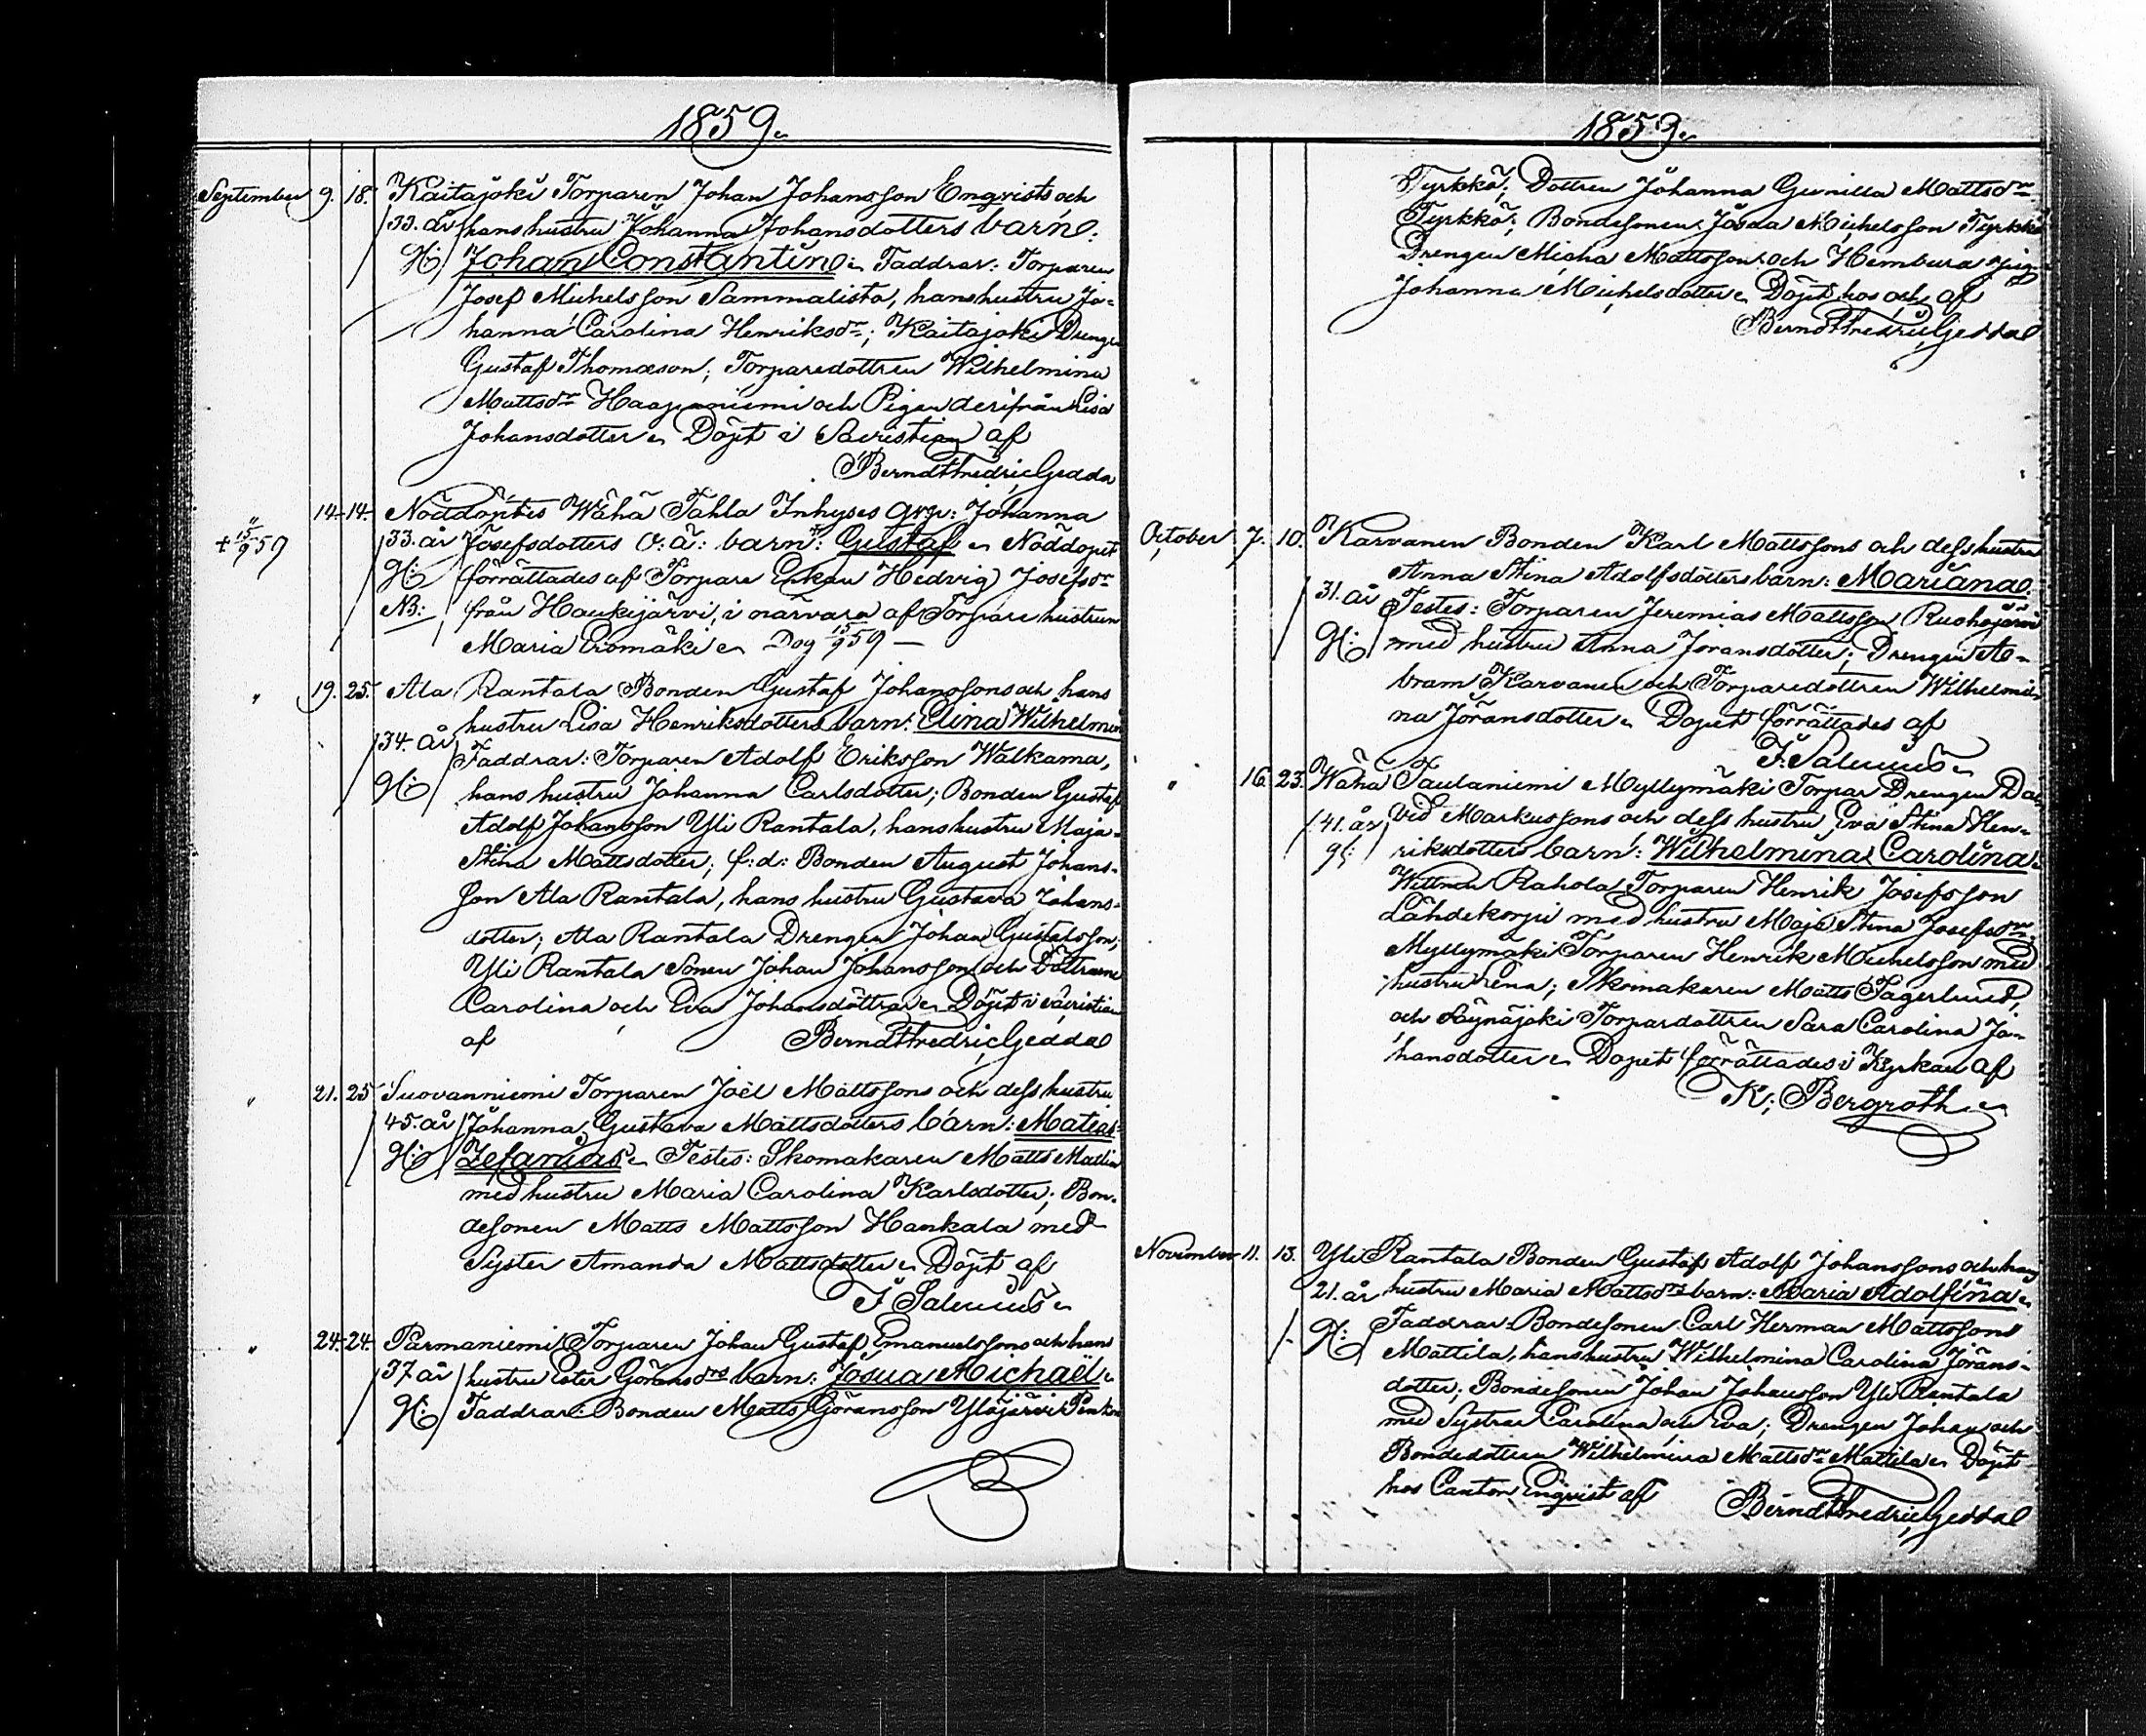 1859.
September 9. 18. Kaitajoki Torparen Johan Johansson Engvists och
33. år hans hustru Johanna Johansdotters barn:
Johan Constantin. Faddrar: Torparen
Josef Michelsson Sammalisto, hans hustru Jo-
hanna Carolina Henriksdr; Kaitajoki Drengen
Gustaf Thomæson; Torparedottren Wilhelmina
Mattsdr Haapaniemi och Pigan derifrån Lisa
Johansdotter. Döpt i Sacristian af
Berndt Fredric Gedda
" 14. 14. Nöddöptes Wähä Tahla Inhyses qvp: Johanna
+ 15/9 59 33. år Josefsdotters o: ä: barn: Gustaf. Nöddopet
förrättades af Torpare Enkan Hedvig Josefsdr
NB: från Haukijärvi, i närvara af Torpare hustrun
Maria Eromäki. Dog 15/9 59 —
" 19. 25. Ala Rantala Bonden Gustaf Johanssons och hans
hustru Lisa Henriksdotters barn: Elina Wilhelmina
34. år Faddrar: Torparen Adolf Eriksson Walkama,
hans hustru Johanna Carlsdotter; Bonden Gustaf
Adolf Johansson Yli Rantala, hans hustru Maja
Stina Mattsdotter; f:d: Bonden August Johans-
son Ala Rantala, hans hustru Gustava Johans-
dotter; Ala Rantala Drengen Johan Gustafsson;
Yli Rantala Sonen Johan Johansson och Döttrarne
Carolina och Eva Johansdöttrar. Döpt i Sacristian
af Berndt Fredric Gedda
" 21. 25 Suovanniemi Torparen Joël Mattssons och dess hustru
45. år Johanna Gustava Mattsdotters barn: Matias
Zefanias. Testes: Skomakaren Matts Matlin
med hustru Maria Carolina Karlsdotter; Bon-
desonen Matts Mattsson Hankala med
Syster Amanda Mattsdotter. Döpt af
F Salenius
" 24. 24. Parmaniemi Torparen Johan Gustaf Emanuelssons och hans
37 år hustru Ester Göransdrs barn: Josua Michaël.
Faddrar: Bonden Matts Göransson Ylöjärvi
1859.
Tyrkkö; Dottren Johanna Gunilla Mattsdr
Tyrkkö; Bondesonen Josua Michelsson Tyrkkö
Drengen Micha Mattsson och Hembura pigan
Johanna Michelsdotter. Döpt hos och af
Berndt Fredric Gedda
October 7. 10. Karvanen Bonden Karl Mattssons och dess hustru
Anna Stina Adolfsdotters barn: Mariana.
31. år Testes: Torparen Jeremias Mattsson Ruohojärvi
med hustru Anna Joransdotter; Drengen A-
bram Karvanen och Torparedottren Wilhelmi-
na Jöransdotter. Dopet förrättades af
F. Salenius
" 16. 23. Wähä Taulaniemi Myllymäki Torpar Drengen Da-
41. år vid Markussons och dess hustru Eva Stina Hen-
riksdotters barn: Wilhelmina Carolina.
Wittnen Rahola Torparen Henrik Josefsson
Lähdekorpi med hustru Maja Stina Josefsdr;
Myllymäki Torparen Henrik Michelsson med
hustru Lena; Skomakaren Matts Fagerlund,
och Löynäjoki Torpardottren Sara Carolina Jo-
hansdotter. Dopet förrättades i Kyrkan af
K: Bergroth
November 11. 13. Yli Rantala Bonden Gustaf Adolf Johanssons och hans
21. år hustru Maria Mattsdrs barn: Maria Adolfina.
Faddrar: Bondesonen Carl Herman Mattsson
Mattila, hans hustru Wilhelmina Carolina Jörans-
dotter; Bondesonen Johan Johansson Yli Rantala
med Systrar Carolina och Eva; Drengen Johan och
Bondedottren Wilhelmina Mattsdr Mattila. Döpt
hos Cantor Engvist af Berndt Fredric Gedda